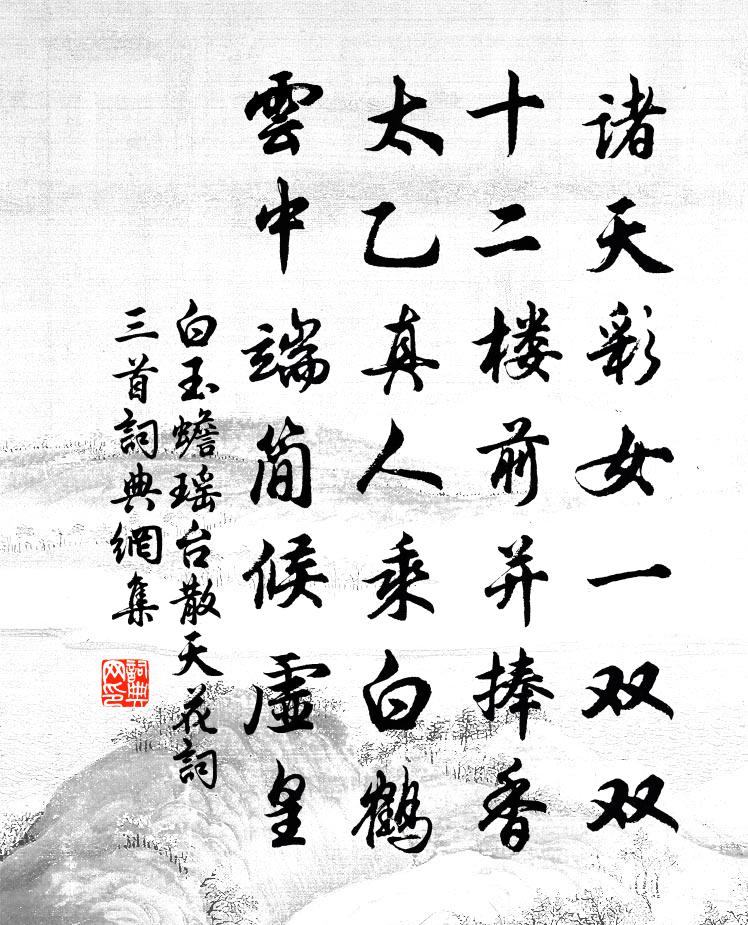 诸天彩女一双双
十二楼前并捧香
太乙真人乘白鹤
雲中端简候虛皇
白玉蟾瑶台散天花詞
三首詞典網集
詞典
网印